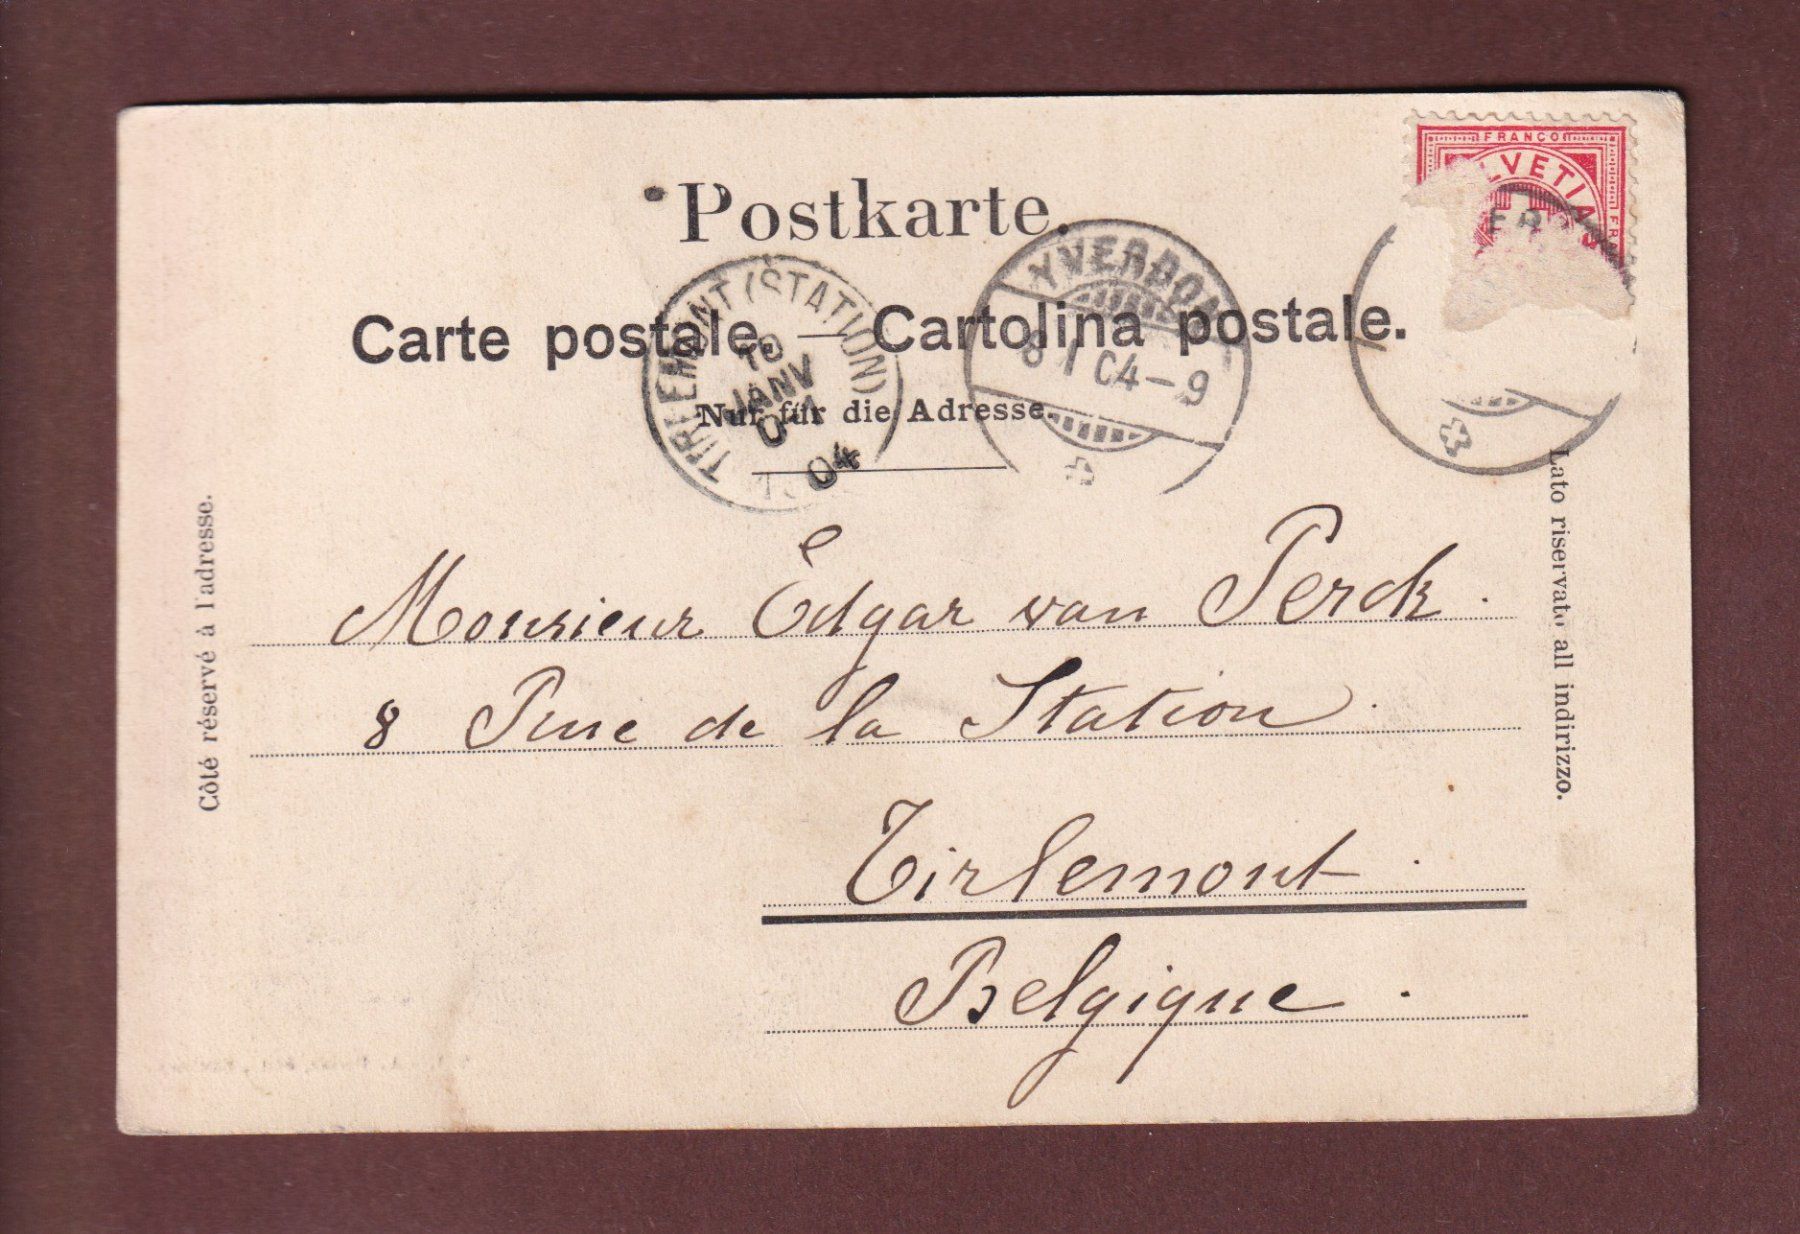 FRANCO
HELVETIA
FR
Postkarte.
Carte postale. — Cartolina postale.
Nur für die Adresse.
TIRLEMONT (STATION)
10
JANV
04
04
YVERDON
8 I 04-9
Côté réservé à l'adresse.
Lato riservato all indirizzo.
Monsieur Edgar van Perck.
8 Rue de la Station.
Tirlemont.
Belgique.